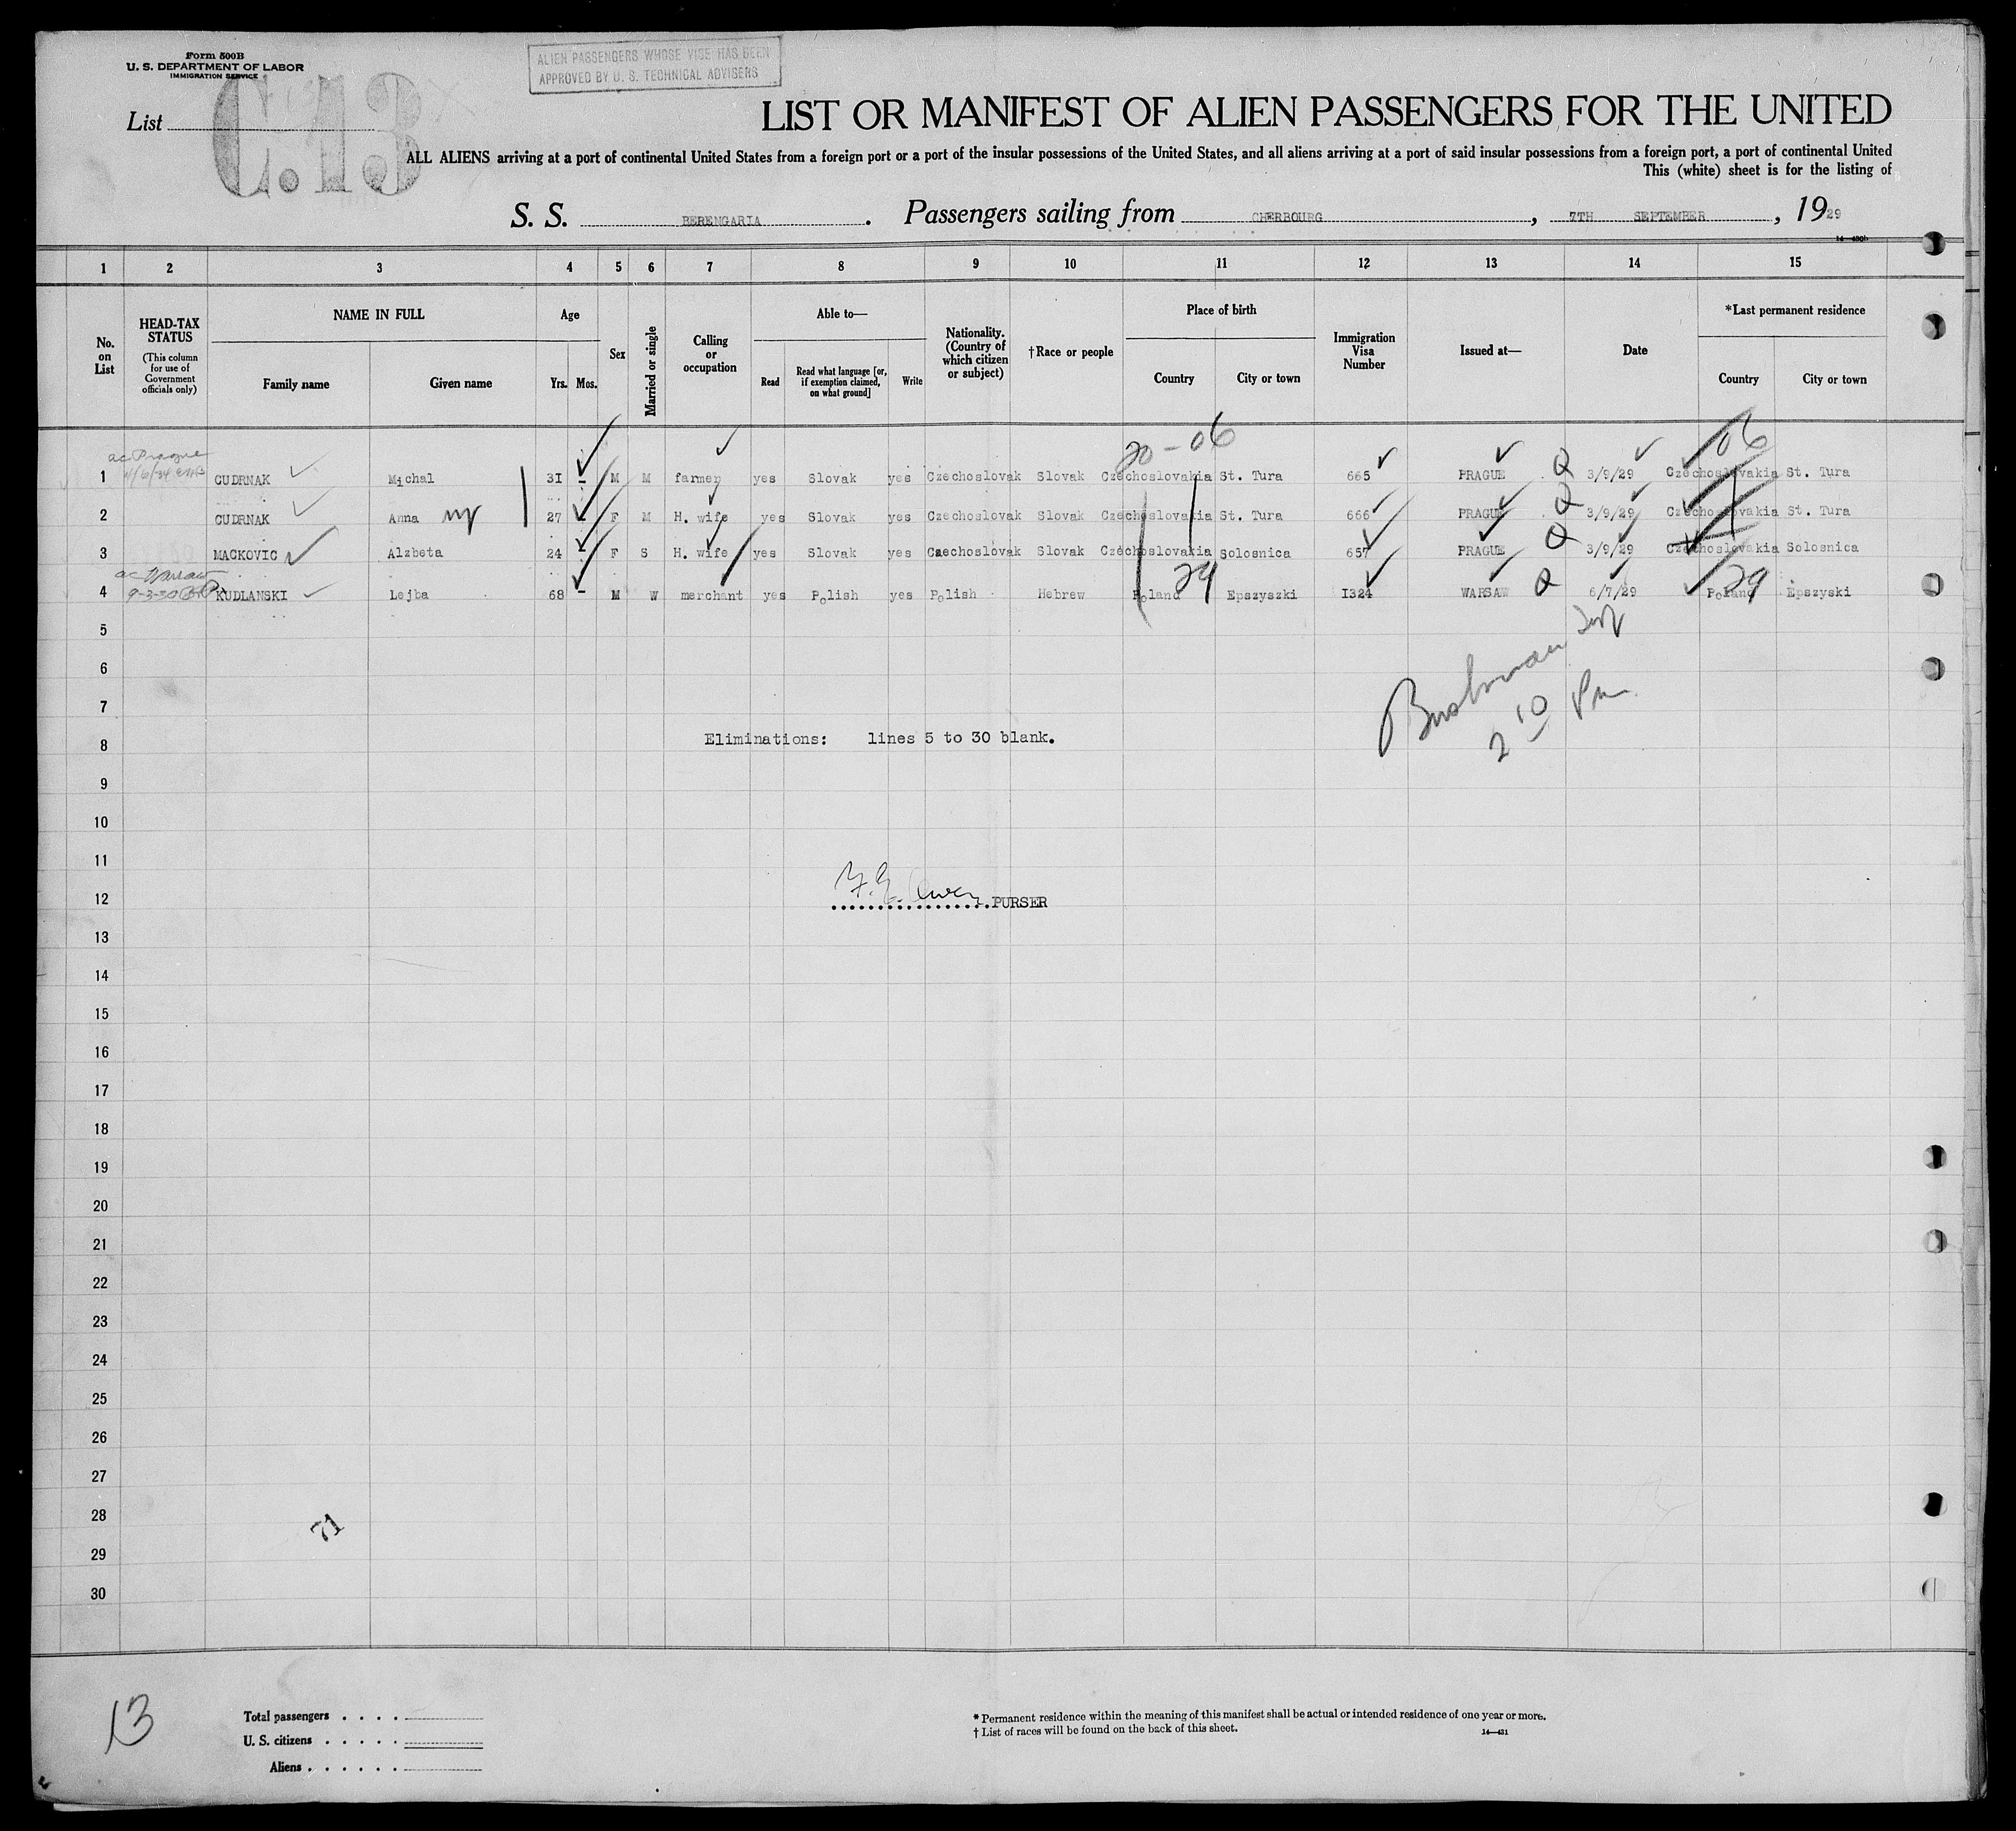 Form 500B
U. S. DEPARTMENT OF LABOR
IMMIGRATION SERVICE
ALIEN PASSENGERS WHOSE VISE HAS BEEN
APPROVED BY U. S. TECHNICAL ADVISERS
List
C.13
LIST OR MANIFEST OF ALIEN PASSENGERS FOR THE UNITED
ALL ALIENS arriving at a port of continental United States from a foreign port or a port of the insular possessions of the United States, and all aliens arriving at a port of said insular possessions from a foreign port, a port of continental United
This (white) sheet is for the listing of
S. S. BERENGARIA . Passengers sailing from CHERBOURG , 7TH SEPTEMBER , 1929
14-430b
1 2 3 4 5 6 7 8 9 10 11 12 13 14 15
No. on List
HEAD-TAX STATUS
(This column for use of Government officials only)
NAME IN FULL
Family name
Given name
Age
Yrs. Mos.
Sex
Married or single
Calling or occupation
Able to—
Read
Read what language [or, if exemption claimed, on what ground]
Write
Nationality. (Country of which citizen or subject)
†Race or people
Place of birth
Country
City or town
Immigration Visa Number
Issued at—
Date
*Last permanent residence
Country
City or town
20-06
06
ac Prague
1 Michal 31 - M M farmer yes Slovak yes Czechoslovak Slovak Czechoslovakia St. Tura 665 PRAGUE 3/9/29 Czechoslovakia St. Tura
2 Anna 27 F M H. wife yes Slovak yes Czechoslovak Slovak Czechoslovakia St. Tura 666 PRAGUE 3/9/29 Czechoslovakia St. Tura
3 MACKOVIC Alzbeta 24 F S H. wife yes Slovak yes Czechoslovak Slovak Czechoslovakia Solosnica 657 PRAGUE 3/9/29 Czechoslovakia Solosnica
ac Warsaw
9-3-30
29
29
4 KUDLANSKI Lejba 68 - M W merchant yes Polish yes Polish Hebrew Poland Epszyszki I324 WARSAW 6/7/29 Poland Epszyski
5
6
7
2 10 Pm
8 Eliminations: lines 5 to 30 blank.
9
10
11
12 PURSER
13
14
15
16
17
18
19
20
21
22
23
24
25
26
27
28
71
29
30
13
Total passengers . . . .
U. S. citizens . . . . .
Aliens . . . . . .
* Permanent residence within the meaning of this manifest shall be actual or intended residence of one year or more.
† List of races will be found on the back of this sheet.
14-431